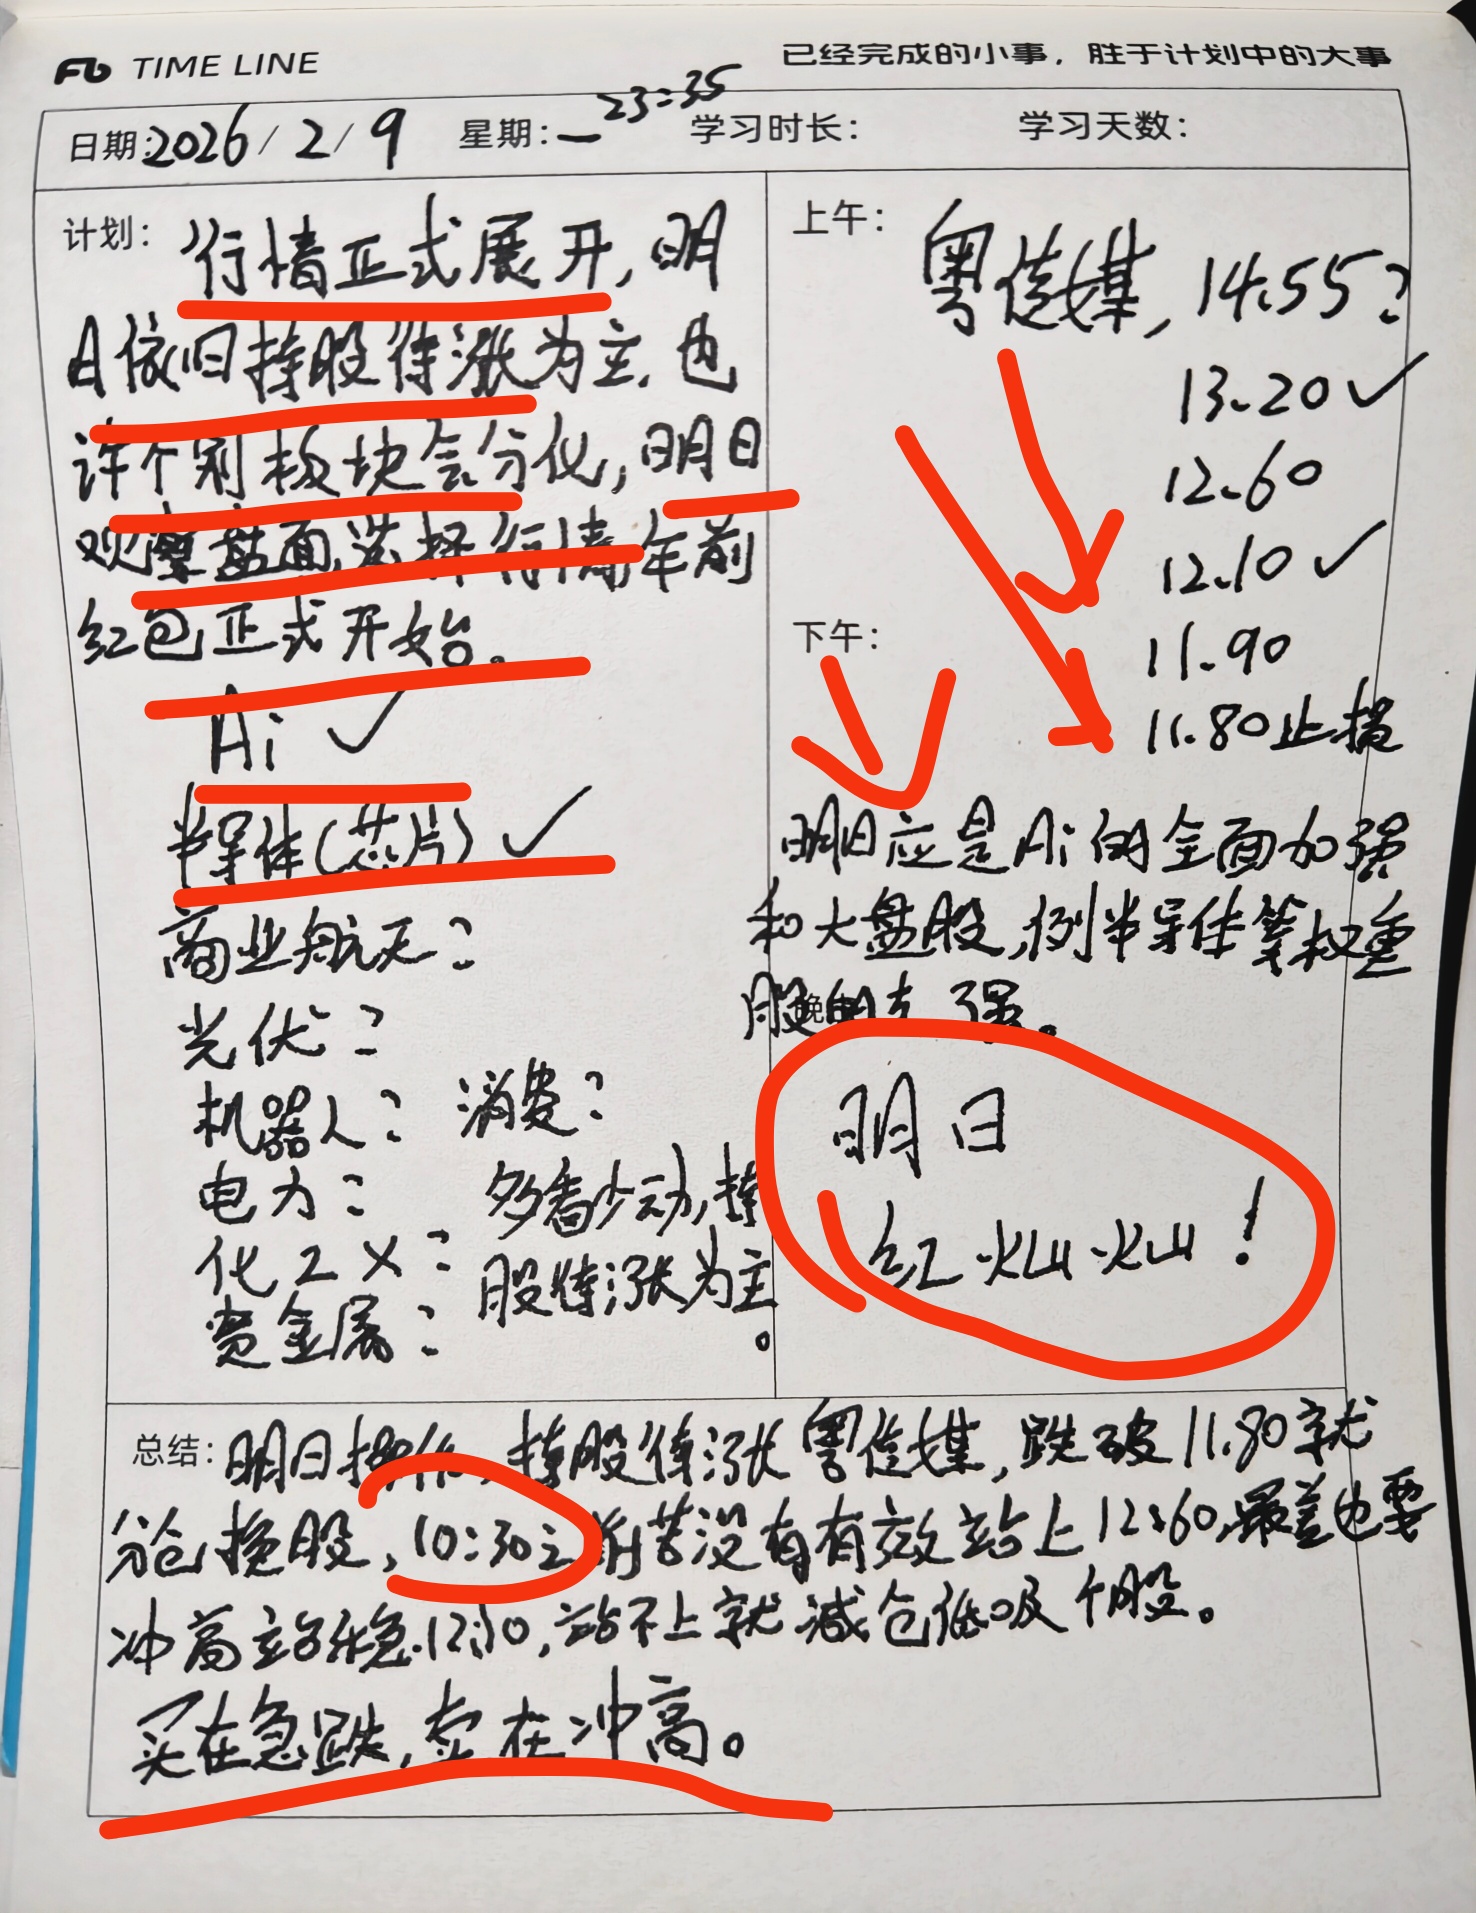 TIME LINE
已经完成的小事，胜于计划中的大事
日期：2026/2/9 星期：一 23:35 学习时长： 学习天数：
计划：行情正式展开，明
日依旧持股待涨为主，也
许个别板块会分化，明日
观察盘面，选择行情年前
红包正式开始。
Ai ✓
半导体（芯片）✓
商业航天？
光伏？
机器人？ 消费？
电力？ 多看少动，持
化工×？ 股待涨为主
贵金属？ 。
上午：粤传媒，14.55？
13.20✓
12.60
12.10✓
11.90
下午：
11.80止损
明日应是Ai的全面加强
和大盘股，例半导体等权重
股的走强。
明日
红灿灿！
总结：明日操作，持股待涨粤传媒，跌破11.80就
分仓换股，10:30之前若没有有效站上12.60，最差也要
冲高站稳12.10，站不上就减仓低吸个股。
买在急跌，卖在冲高。